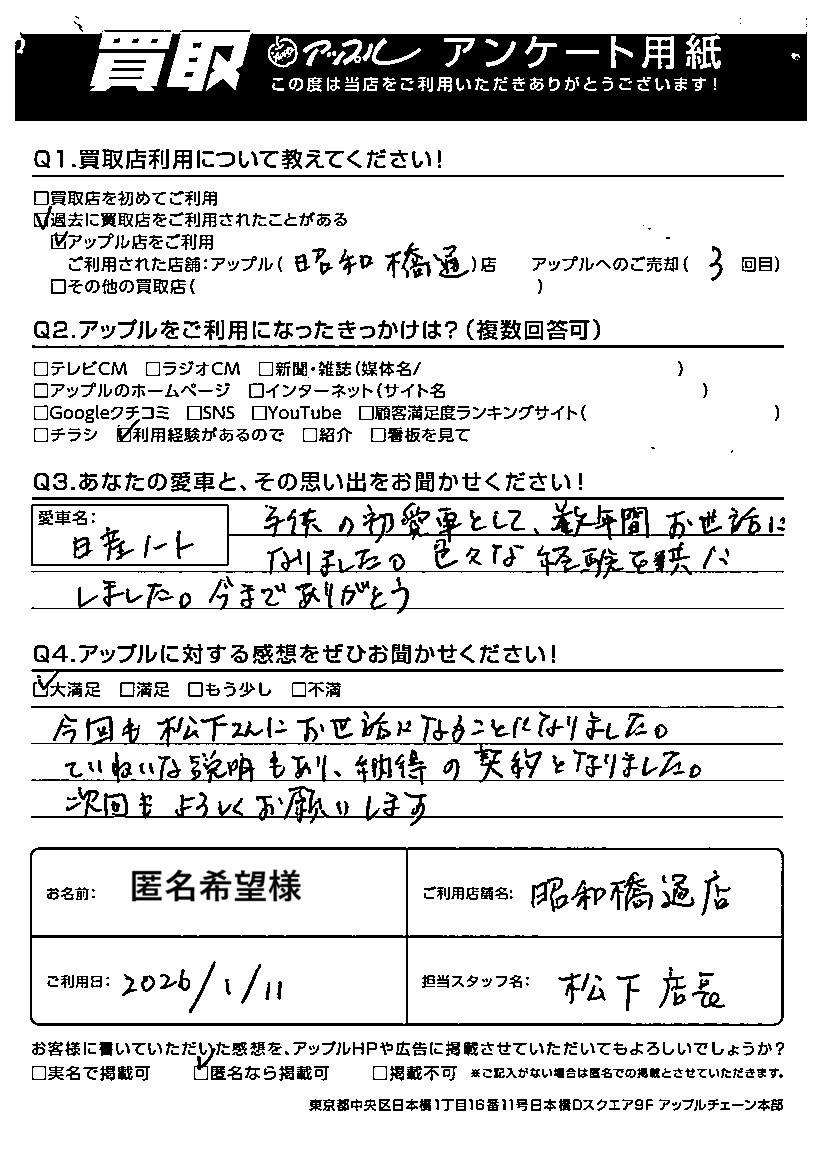 買取 アップル アンケート用紙
この度は当店をご利用いただきありがとうございます!
Q1.買取店利用について教えてください!
□買取店を初めてご利用
☑過去に買取店をご利用されたことがある
☑アップル店をご利用
ご利用された店舗:アップル(昭和橋通)店 アップルへのご売却(3回目)
□その他の買取店( )
Q2.アップルをご利用になったきっかけは?(複数回答可)
□テレビCM □ラジオCM □新聞・雑誌(媒体名/ )
□アップルのホームページ □インターネット(サイト名 )
□Googleクチコミ □SNS □YouTube □顧客満足度ランキングサイト( )
□チラシ ☑利用経験があるので □紹介 □看板を見て
Q3.あなたの愛車と、その思い出をお聞かせください!
愛車名:
日産ノート
子供の初愛車として、数年間お世話に
なりました。色々な経験を共に
しました。今までありがとう
Q4.アップルに対する感想をぜひお聞かせください!
☑大満足 □満足 □もう少し □不満
今回も松下さんにお世話になることになりました。
ていねいな説明もあり、納得の契約となりました。
次回もよろしくお願いします
お名前: 匿名希望様 ご利用店舗名: 昭和橋通店
ご利用日: 2026/1/11 担当スタッフ名: 松下店長
お客様に書いていただいた感想を、アップルHPや広告に掲載させていただいてもよろしいでしょうか?
□実名で掲載可 ☑匿名なら掲載可 □掲載不可 ※ご記入がない場合は匿名での掲載とさせていただきます。
東京都中央区日本橋1丁目16番11号日本橋Dスクエア9F アップルチェーン本部